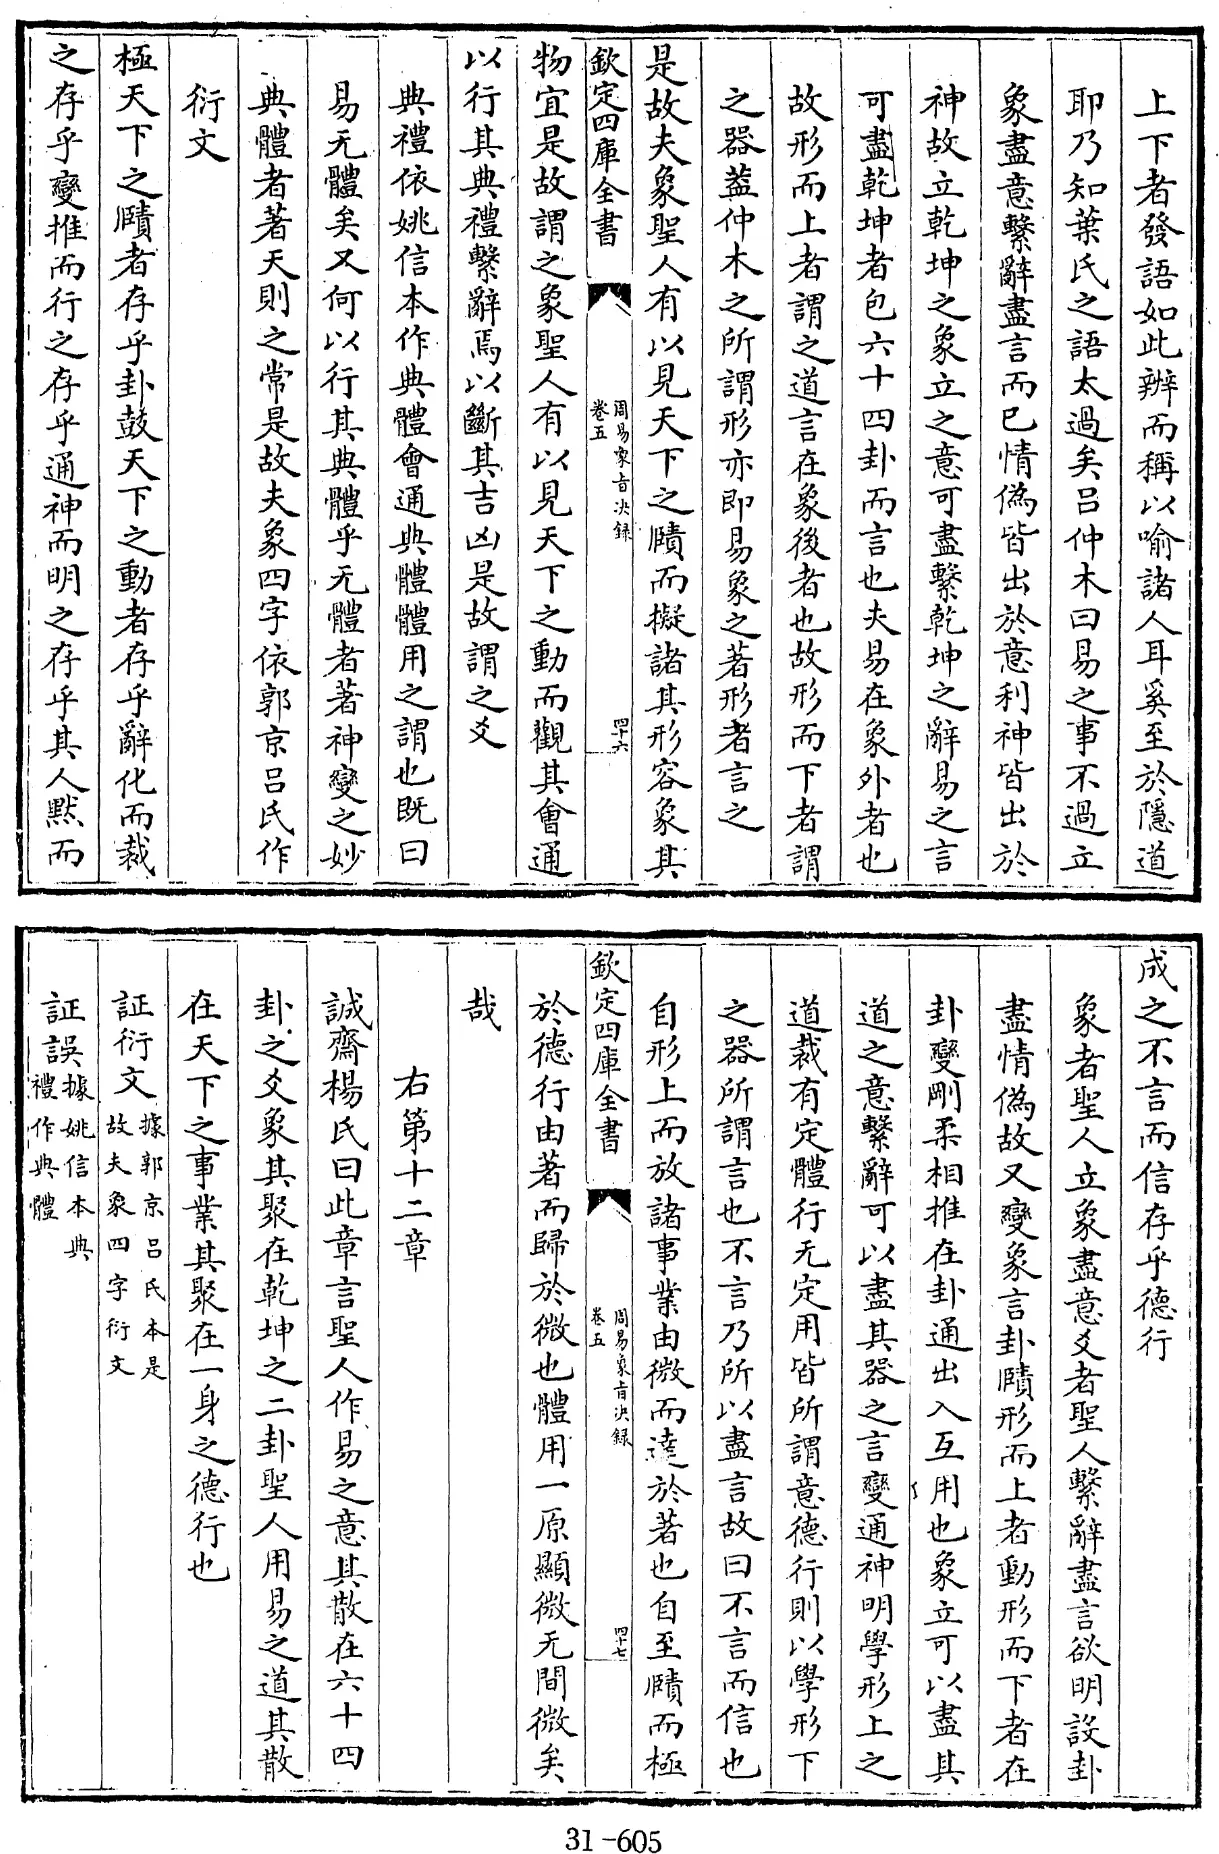 上下者發語如此辨而稱以喻諸人耳奚至於隱道
耶乃知葉氏之語太過矣吕仲木曰易之事不過立
象盡意繫辭盡言而已情偽皆出於意利神皆出於
神故立乾坤之象立之意可盡繫乾坤之辭易之言
可盡乾坤者包六十四卦而言也夫易在象外者也
故形而上者謂之道言在象後者也故形而下者謂
之器葢仲木之所謂形亦即易象之著形者言之
是故夫象聖人有以見天下之賾而擬諸其形容象其
欽定四庫全書
周易象旨决録
卷五
四十六
物宜是故謂之象聖人有以見天下之動而觀其會通
以行其典禮繫辭焉以斷其吉凶是故謂之爻
典禮依姚信本作典體會通典體體用之謂也既曰
易无體矣又何以行其典體乎无體者著神變之妙
典體者著天則之常是故夫象四字依郭京吕氏作
衍文
極天下之賾者存乎卦鼓天下之動者存乎辭化而裁
之存乎變推而行之存乎通神而明之存乎其人黙而
成之不言而信存乎德行
象者聖人立象盡意爻者聖人繫辭盡言欲明設卦
盡情偽故又變象言卦賾形而上者動形而下者在
卦變剛柔相推在卦通出入互用也象立可以盡其
道之意繫辭可以盡其器之言變通神明學形上之
道裁有定體行无定用皆所謂意德行則以學形下
之器所謂言也不言乃所以盡言故曰不言而信也
自形上而放諸事業由微而達於著也自至賾而極
欽定四庫全書
周易象旨决録
卷五
四十七
於德行由著而歸於微也體用一原顯微无間微矣
哉
右第十二章
誠齋楊氏曰此章言聖人作易之意其散在六十四
卦之爻象其聚在乾坤之二卦聖人用易之道其散
在天下之事業其聚在一身之德行也
証衍文據郭京吕氏本是
故夫象四字衍文
証誤據姚信本典
禮作典體
31-605